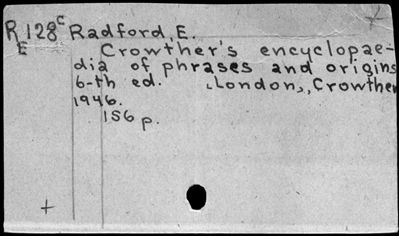 R128c Radford, E.
E Crowther's encyclopae-
dia of phrases and origins
6-th ed. London, Crowther
1946.
156 p.